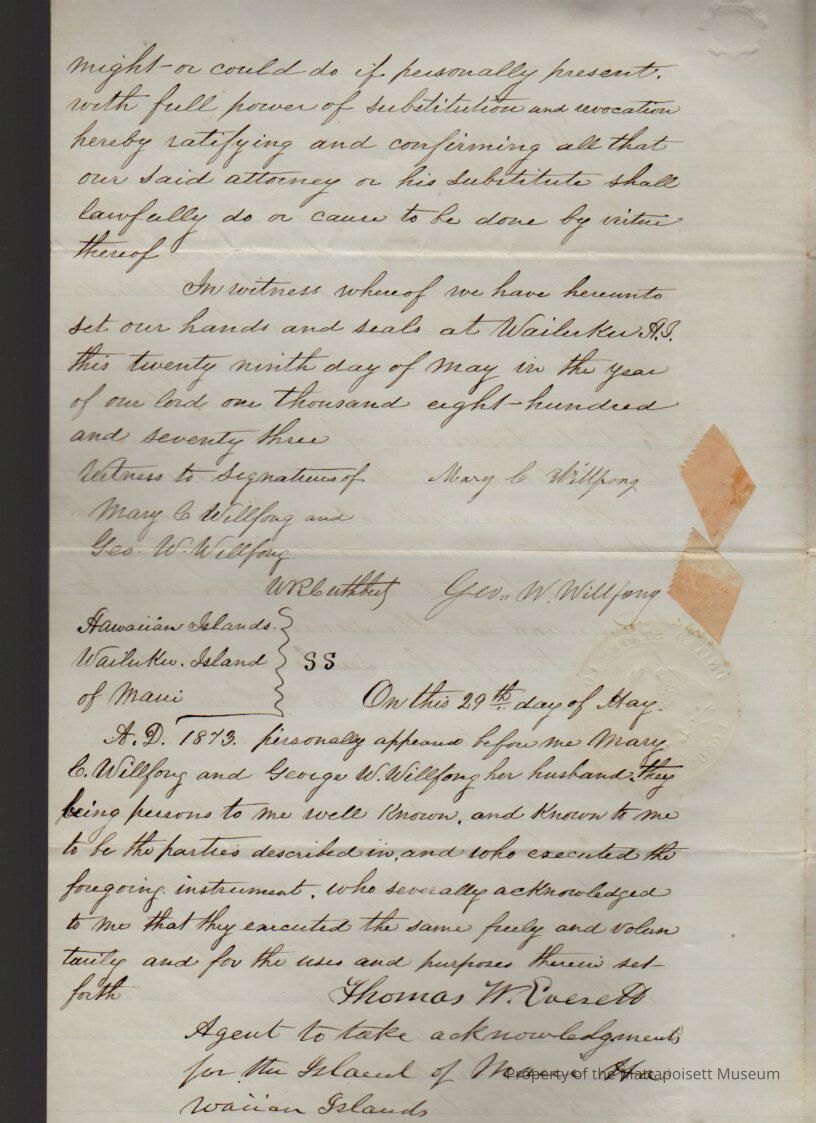 might or could do if personally present.
with full power of substitution and revocation
hereby ratifying and confirming all that
our said attorney or his substitute shall
lawfully do or cause to be done by virtue
thereof
In witness whereof we have hereunto
set our hands and seals at Wailuku H.I.
this twenty ninth day of May in the year
of our lord one thousand eight hundred
and seventy three
Witness to signatures of
Mary C Willfong
Mary C Willfong and
Geo. W. Willfong
W R Cuthbert
Geo. W. Willfong
Hawaiian Islands.
Wailuku. Island
SS
of Maui
On this 29th day of May.
A. D. 1873. personally appeared before me Mary
C. Willfong and George W. Willfong her husband. they
being persons to me well known, and known to me
to be the parties described in, and who executed the
foregoing instrument, who severally acknowledged
to me that they executed the same freely and volun
tarily and for the uses and purposes therein set
forth
Thomas W. Everett
Agent to take acknowledgments
for the Island of Maui Ha
waiian Islands
Property of the Mattapoisett Museum